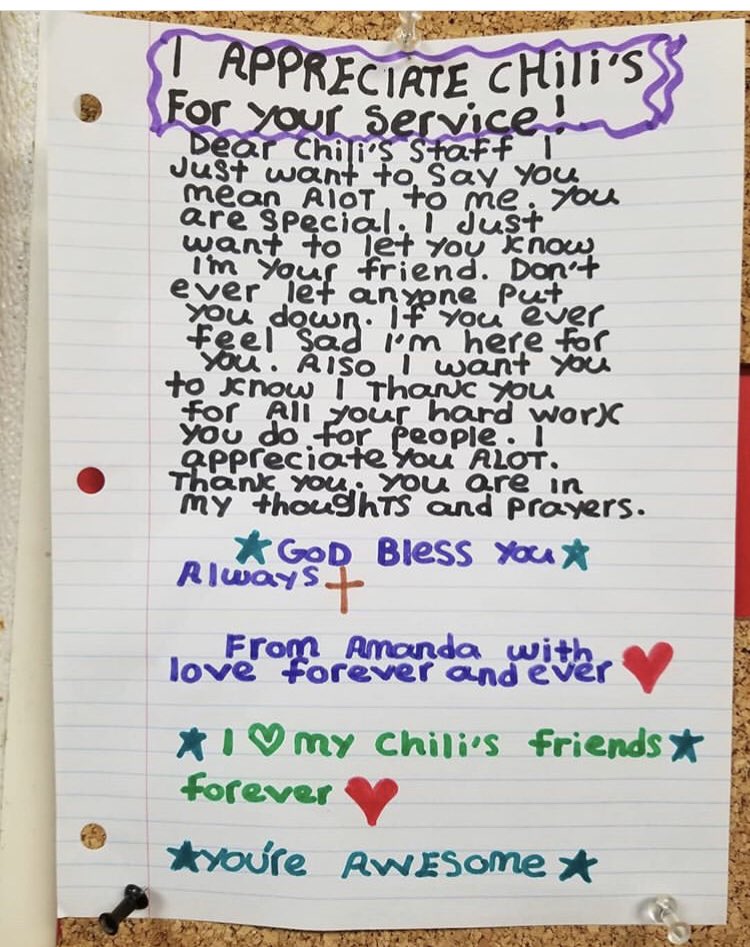 I APPRECIATE CHili's
For your Service!
Dear Chili's Staff I
Just want to Say you
mean AloT to me. you
are special. I Just
want to let you know
I'm your friend. Don't
ever let anyone put
you down. If you ever
feel Sad I'm here for
you. Also I want you
to know I Thank you
for All your hard work
you do for people. I
appreciate you ALOT.
Thank you. you are in
my thoughTs and prayers.
★ GoD Bless you ★
Always ✝
From Amanda with
love forever and ever ♥
★ I ♡ my Chili's friends ★
forever ♥
★ you're AWESome ★